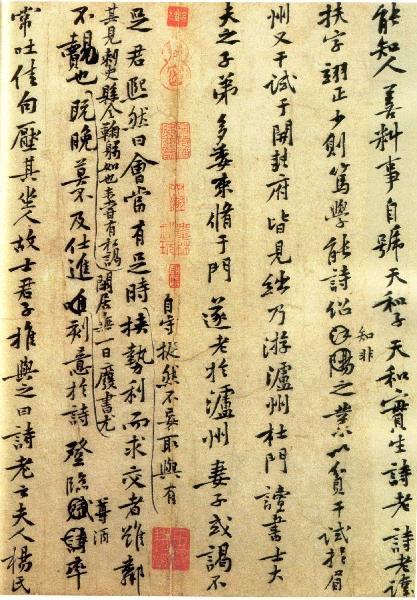 能知人善料事自號天和子天和實生詩老詩老諱
扶字翊正少則篤學能詩紹知非之業以貢干試於眉
州又干試于開封府皆見絀乃游瀘州杜門讀書士大
夫之子弟多委束脩于門遂老於瀘州妻子或謁不
自守挺然不妄取與有
足君熙然曰會當有足時挾勢利而求交者雖鄰
其見刺史縣令鞠躬如也未嘗有私謁閒居無一日廢書尤
不覿也既晚莫不及仕進唯刻意於詩登臨尊酒率
常吐佳句壓其坐人故士君子推與之曰詩老云夫人楊氏